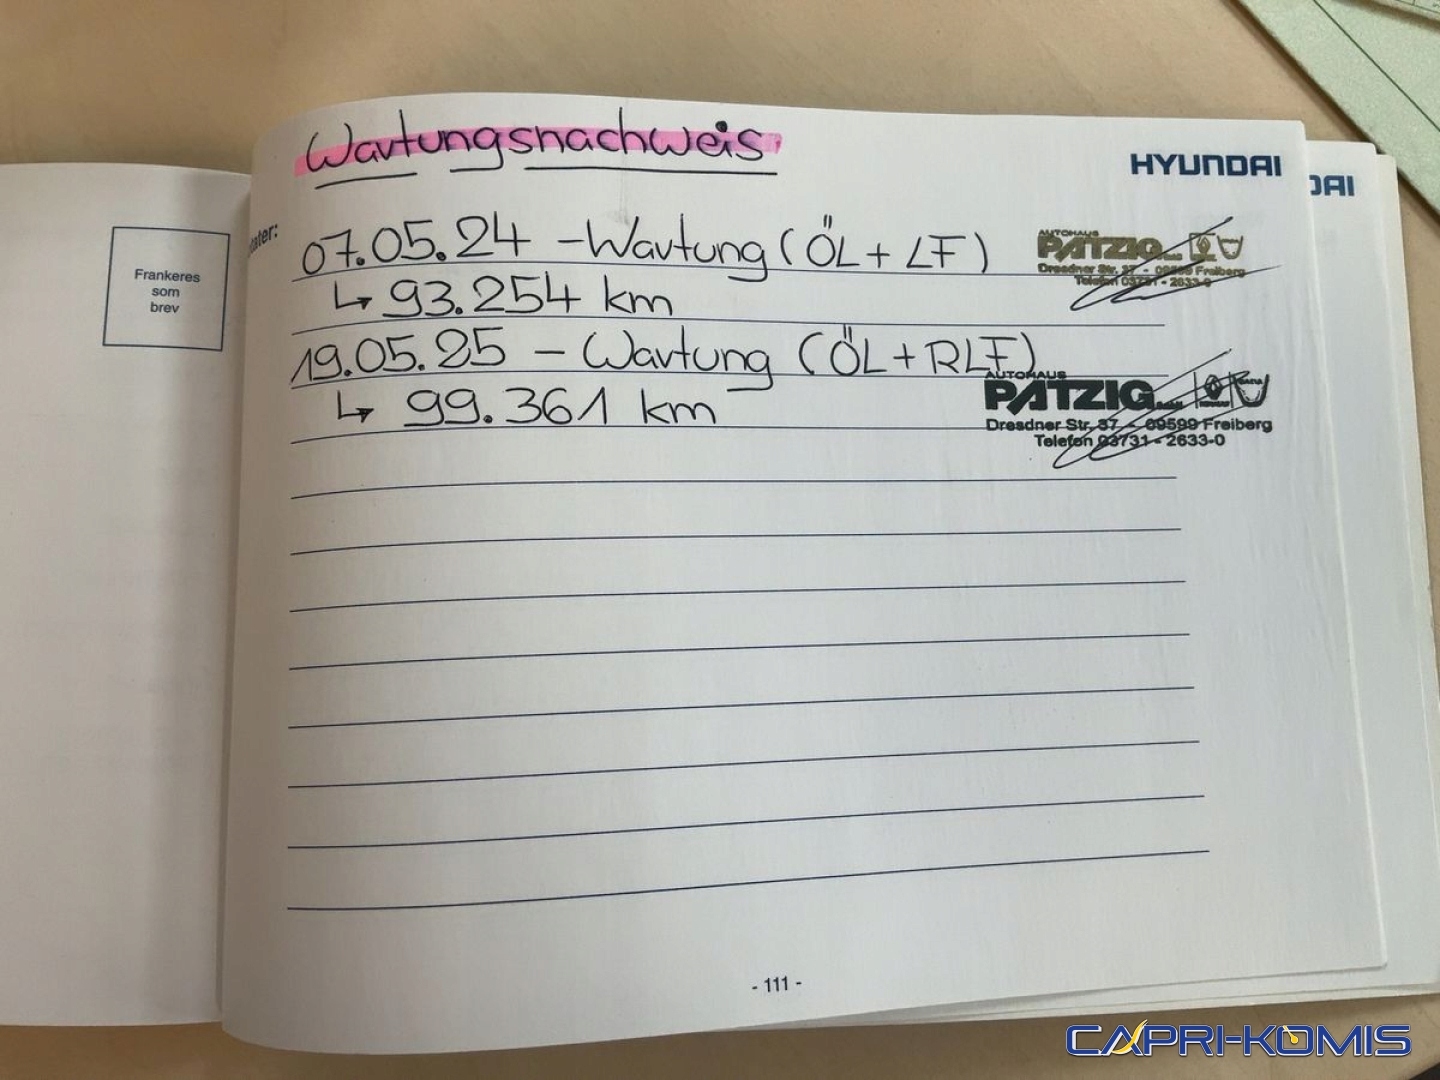 Wartungsnachweis
HYUNDAI
DAI
Frankeres
som
brev
07.05.24 - Wartung (ÖL + LF)
↳ 93.254 km
AUTOHAUS
PATZIG
Dresdner Str. 37 - 09599 Freiberg
Telefon 03731 - 2633-0
19.05.25 - Wartung (ÖL + RLF)
↳ 99.361 km
AUTOHAUS
PATZIG
Dresdner Str. 37 - 09599 Freiberg
Telefon 03731 - 2633-0
- 111 -
CAPRI-KOMIS